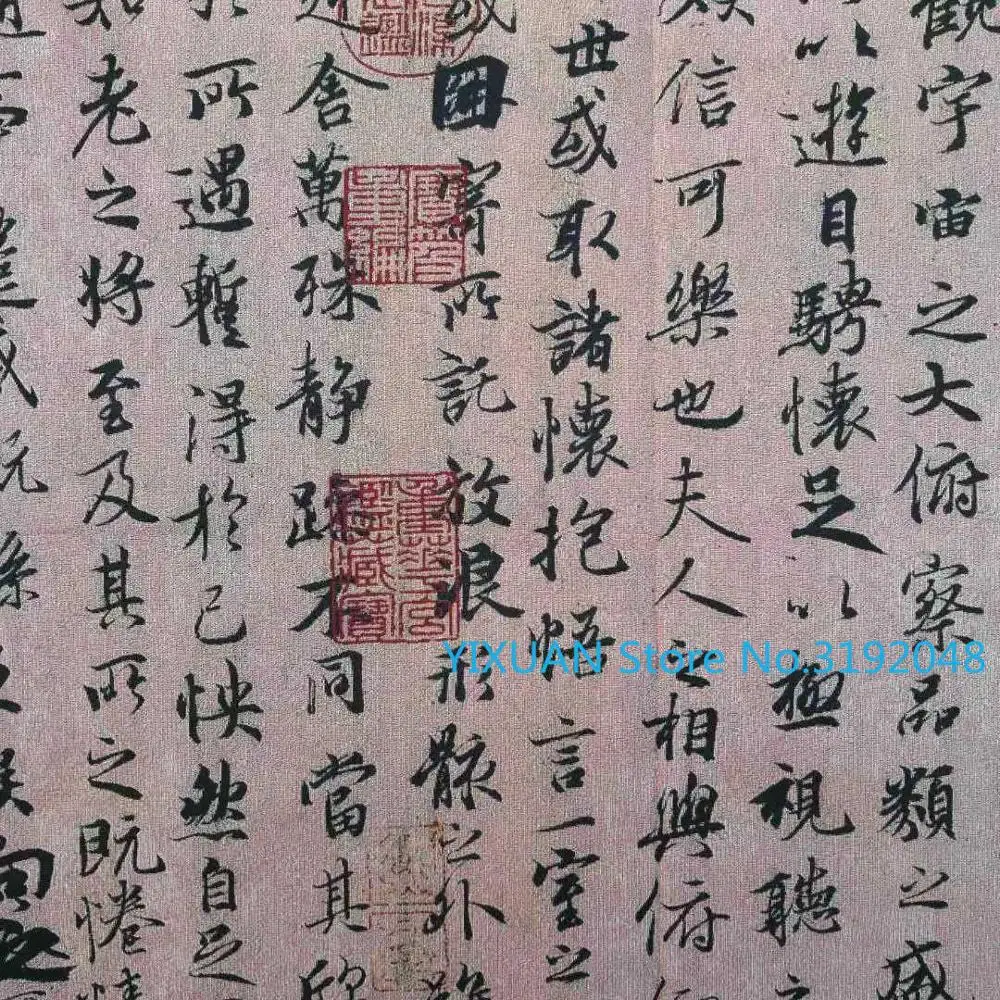 觀宇宙之大俯察品類之盛
所以遊目騁懷足以極視聽之
娛信可樂也夫人之相與俯仰
世或取諸懷抱悟言一室之
或因寄所託放浪形骸之外雖
舍萬殊静躁不同當其欣
於所遇蹔得於己怏然自足
知老之將至及其所之既惓情
YIXUAN Store No.3192048